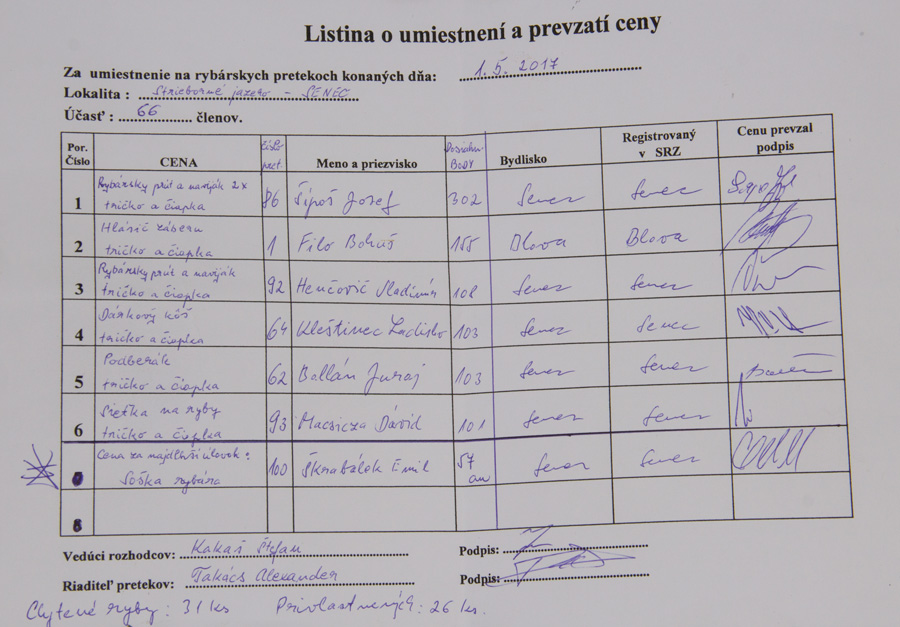 Listina o umiestnení a prevzatí ceny
Za umiestnenie na rybárskych pretekoch konaných dňa: 1.5.2017
Lokalita : Strieborné jazero - SENEC
Účasť : 66 členov.
Por. Číslo CENA Číslo pret. Meno a priezvisko Dosiahn. BODY Bydlisko Registrovaný v SRZ Cenu prevzal podpis
Rybársky prút a naviják 2x
1 tričko a čiapka 86 Šipoš Jozef 302 Senec Senec
Hlásič záberu
2 tričko a čiapka 1 Filo Bohuš 155 Blava Blava
Rybársky prút a naviják
3 tričko a čiapka 92 Henčovič Vladimír 108 Senec Senec
Dárkový kôš
4 tričko a čiapka 64 Kleštinec Ladislav 103 Senec Senec
Podberák
5 tričko a čiapka 62 Ballán Juraj 103 Senec Senec
Sieťka na ryby
6 tričko a čiapka 93 Macsicza Dávid 101 Senec Senec
Cena za najdlhší úlovok :
Soška rybára 100 Škrabálek Emil 57 cm Senec Senec
8
Vedúci rozhodcov: Kakaš Štefan Podpis:
Riaditeľ pretekov: Takács Alexander Podpis:
Chytené ryby : 31 ks Privlastnených : 26 ks.